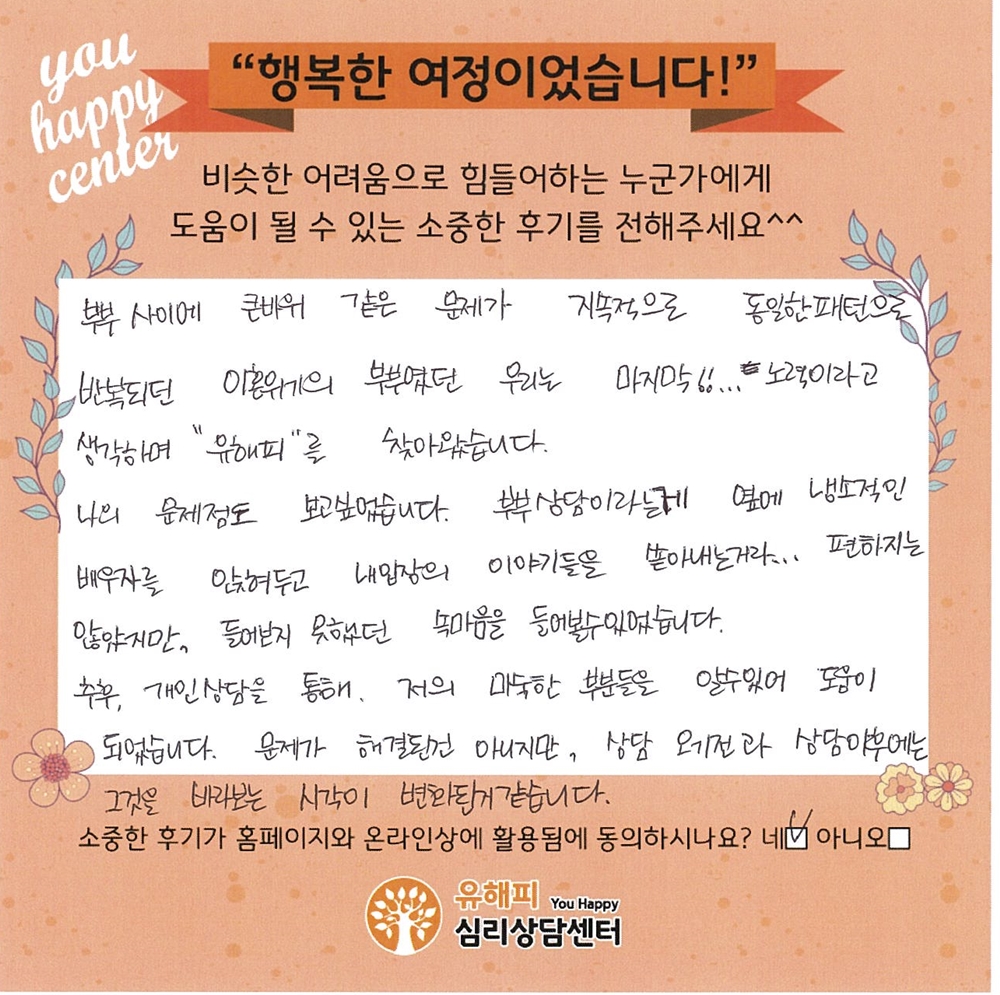 you
happy
center
“행복한 여정이었습니다!”
비슷한 어려움으로 힘들어하는 누군가에게
도움이 될 수 있는 소중한 후기를 전해주세요^^
부부 사이에 큰바위 같은 문제가 지속적으로 동일한패턴으로
반복되던 이혼위기의 부부였던 우리는 마지막!!... 노력이라고
생각하며 "유해피"를 찾아왔습니다.
나의 문제점도 보고싶었습니다. 부부상담이라는게 옆에 냉소적인
배우자를 앉혀두고 내입장의 이야기들을 쏟아내는거라... 편하지는
않았지만, 들어보지 못했던 속마음을 들어볼수있었습니다.
추후, 개인상담을 통해. 저의 미숙한 부분들을 알수있어 도움이
되었습니다. 문제가 해결된건 아니지만, 상담 오기전과 상담이후에는
그것을 바라보는 시각이 변화된거같습니다.
소중한 후기가 홈페이지와 온라인상에 활용됨에 동의하시나요? 네☑ 아니오☐
유해피 You Happy
심리상담센터